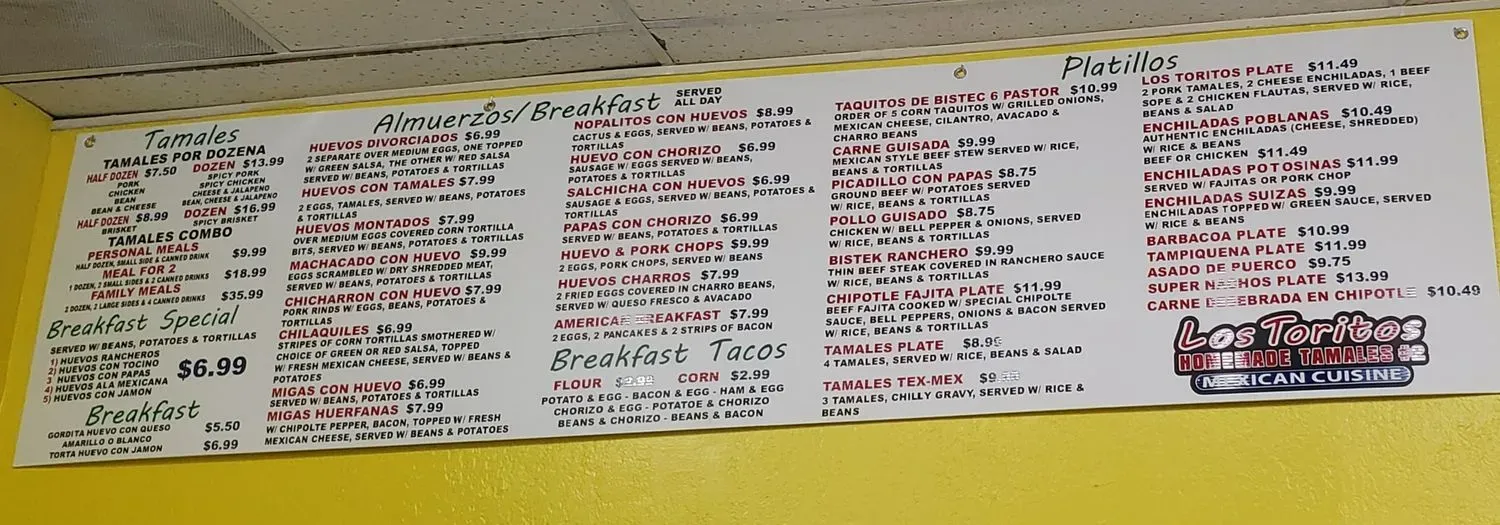 Tamales
TAMALES POR DOZENA
HALF DOZEN $7.50 DOZEN $13.99
PORK SPICY PORK
CHICKEN SPICY CHICKEN
BEAN CHEESE & JALAPENO
BEAN & CHEESE BEAN, CHEESE & JALAPENO
HALF DOZEN $8.99 DOZEN $16.99
BRISKET SPICY BRISKET
TAMALES COMBO
PERSONAL MEALS $9.99
HALF DOZEN, SMALL SIDE & CANNED DRINK
MEAL FOR 2 $18.99
1 DOZEN, 2 SMALL SIDES & 2 CANNED DRINKS
FAMILY MEALS $35.99
2 DOZEN, 2 LARGE SIDES & 4 CANNED DRINKS
Breakfast Special
SERVED W/ BEANS, POTATOES & TORTILLAS
1) HUEVOS RANCHEROS
2) HUEVOS CON TOCINO
3 HUEVOS CON PAPAS
4) HUEVOS ALA MEXICANA
5) HUEVOS CON JAMON
$6.99
Breakfast
GORDITA HUEVO CON QUESO $5.50
AMARILLO O BLANCO
TORTA HUEVO CON JAMON $6.99
Almuerzos/Breakfast SERVED
ALL DAY
HUEVOS DIVORCIADOS $6.99
2 SEPARATE OVER MEDIUM EGGS, ONE TOPPED
W/ GREEN SALSA, THE OTHER W/ RED SALSA
SERVED W/ BEANS, POTATOES & TORTILLAS
HUEVOS CON TAMALES $7.99
2 EGGS, TAMALES, SERVED W/ BEANS, POTATOES
& TORTILLAS
HUEVOS MONTADOS $7.99
OVER MEDIUM EGGS COVERED CORN TORTILLA
BITS, SERVED W/ BEANS, POTATOES & TORTILLAS
MACHACADO CON HUEVO $9.99
EGGS SCRAMBLED W/ DRY SHREDDED MEAT,
SERVED W/ BEANS, POTATOES & TORTILLAS
CHICHARRON CON HUEVO $7.99
PORK RINDS W/ EGGS, BEANS, POTATOES &
TORTILLAS
CHILAQUILES $6.99
STRIPES OF CORN TORTILLAS SMOTHERED W/
CHOICE OF GREEN OR RED SALSA, TOPPED
W/ FRESH MEXICAN CHEESE, SERVED W/ BEANS &
POTATOES
MIGAS CON HUEVO $6.99
SERVED W/ BEANS, POTATOES & TORTILLAS
MIGAS HUERFANAS $7.99
W/ CHIPOLTE PEPPER, BACON, TOPPED W/ FRESH
MEXICAN CHEESE, SERVED W/ BEANS & POTATOES
NOPALITOS CON HUEVOS $8.99
CACTUS & EGGS, SERVED W/ BEANS, POTATOES &
TORTILLAS
HUEVO CON CHORIZO $6.99
SAUSAGE W/ EGGS SERVED W/ BEANS,
POTATOES & TORTILLAS
SALCHICHA CON HUEVOS $6.99
SAUSAGE & EGGS, SERVED W/ BEANS, POTATOES &
TORTILLAS
PAPAS CON CHORIZO $6.99
SERVED W/ BEANS, POTATOES & TORTILLAS
HUEVO & PORK CHOPS $9.99
2 EGGS, PORK CHOPS, SERVED W/ BEANS
HUEVOS CHARROS $7.99
2 FRIED EGGS COVERED IN CHARRO BEANS,
SERVED W/ QUESO FRESCO & AVOCADO
AMERICAN BREAKFAST $7.99
2 EGGS, 2 PANCAKES & 2 STRIPS OF BACON
Breakfast Tacos
FLOUR $2.99 CORN $2.99
POTATO & EGG - BACON & EGG - HAM & EGG
CHORIZO & EGG - POTATOE & CHORIZO
BEANS & CHORIZO - BEANS & BACON
Platillos
TAQUITOS DE BISTEC 6 PASTOR $10.99
ORDER OF 5 CORN TAQUITOS W/ GRILLED ONIONS,
MEXICAN CHEESE, CILANTRO, AVACADO &
CHARRO BEANS
CARNE GUISADA $9.99
MEXICAN STYLE BEEF STEW SERVED W/ RICE,
BEANS & TORTILLAS
PICADILLO CON PAPAS $8.75
GROUND BEEF W/ POTATOES SERVED
W/ RICE, BEANS & TORTILLAS
POLLO GUISADO $8.75
CHICKEN W/ BELL PEPPER & ONIONS, SERVED
W/ RICE, BEANS & TORTILLAS
BISTEK RANCHERO $9.99
THIN BEEF STEAK COVERED IN RANCHERO SAUCE
W/ RICE, BEANS & TORTILLAS
CHIPOTLE FAJITA PLATE $11.99
BEEF FAJITA COOKED W/ SPECIAL CHIPOLTE
SAUCE, BELL PEPPERS, ONIONS & BACON SERVED
W/ RICE, BEANS & TORTILLAS
TAMALES PLATE $8.99
4 TAMALES, SERVED W/ RICE, BEANS & SALAD
TAMALES TEX-MEX
3 TAMALES, CHILLY GRAVY, SERVED W/ RICE &
BEANS
LOS TORITOS PLATE $11.49
2 PORK TAMALES, 2 CHEESE ENCHILADAS, 1 BEEF
SOPE & 2 CHICKEN FLAUTAS, SERVED W/ RICE,
BEANS & SALAD
ENCHILADAS POBLANAS $10.49
AUTHENTIC ENCHILADAS (CHEESE, SHREDDED)
W/ RICE & BEANS
BEEF OR CHICKEN $11.49
ENCHILADAS POTOSINAS $11.99
SERVED W/ FAJITAS OR PORK CHOP
ENCHILADAS SUIZAS $9.99
ENCHILADAS TOPPED W/ GREEN SAUCE, SERVED
W/ RICE & BEANS
BARBACOA PLATE $10.99
TAMPIQUENA PLATE $11.99
ASADO DE PUERCO $9.75
SUPER NACHOS PLATE $13.99
CARNE DESHEBRADA EN CHIPOTLE $10.49
Los Toritos
HOMEMADE TAMALES #2
MEXICAN CUISINE